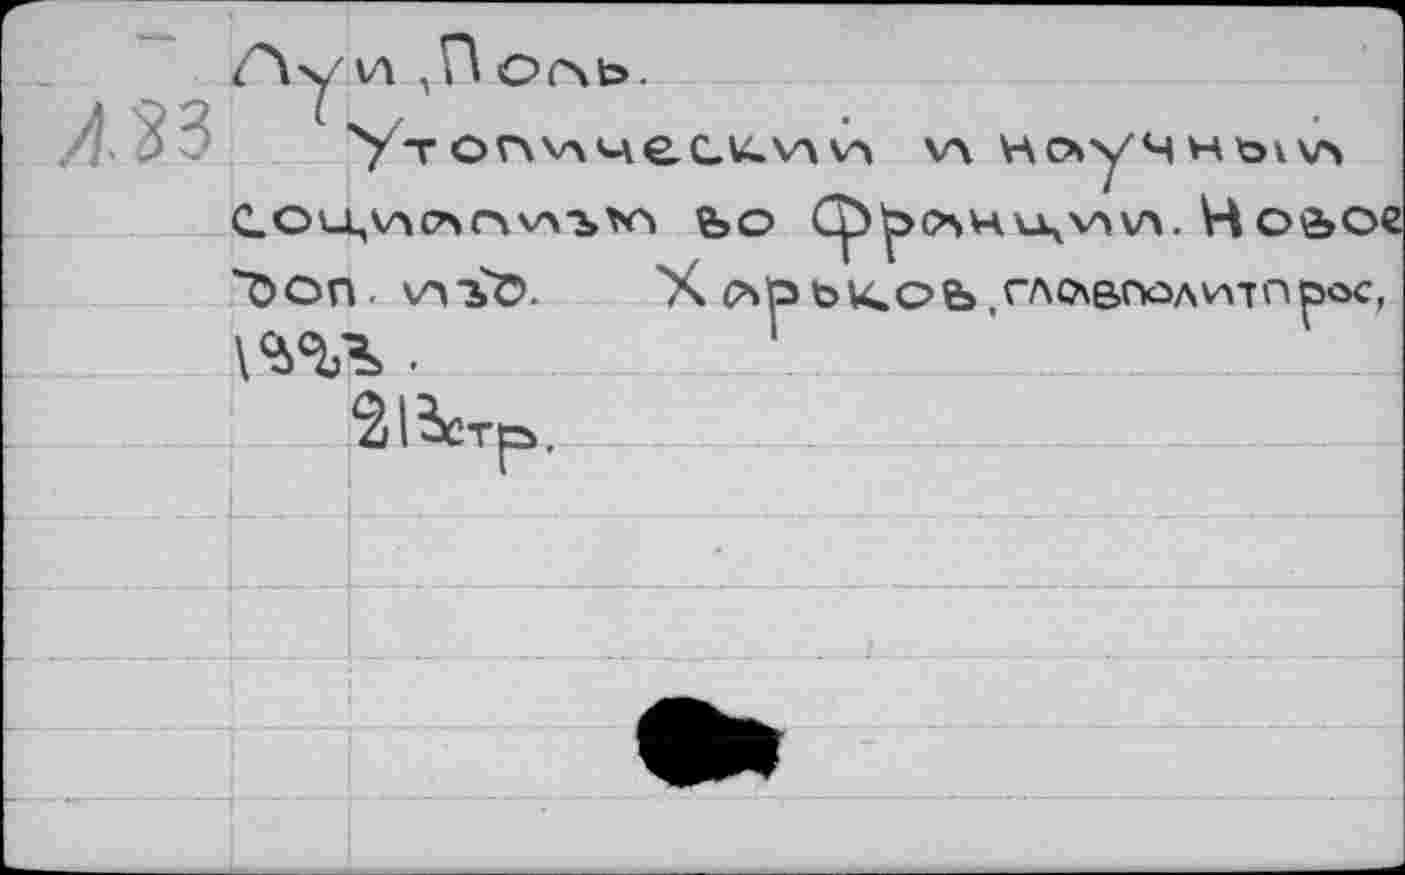 Луи, Поль.
Л.83 Утопический и научный
социализм во Франции. Новое
доп. изд. Харьков, Главполитпрос,
1923.
213стр.